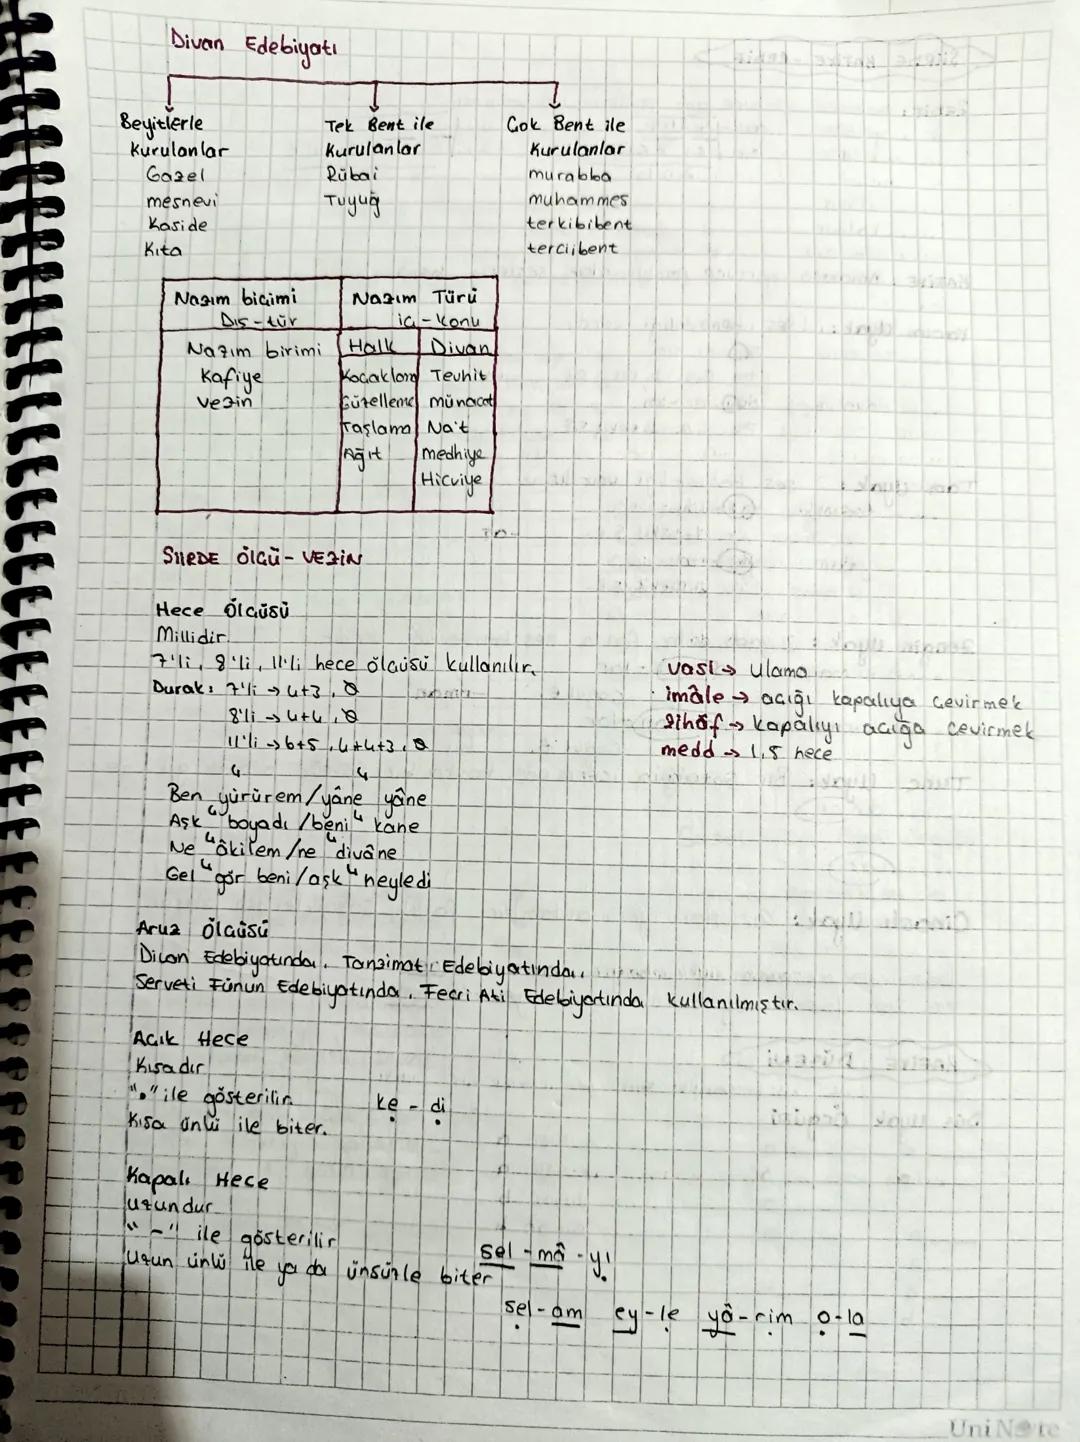 Divan Edebiyatı
Beyitlerle
Kurulanlar
Gazel
mesnevi
Kaside
Kıta
Tek Bent ile
Kurulanlar
Rübai
Tuyuğ
Çok Bent ile
Kurulanlar
murabba
muhammes
terkibibent
terciibent
Nazım biçimi
Dış-tür
Nazım Türü
iç-konu
Nazım birimi
Kafiye
vezin
Halk
Koçaklama
Güzelleme
Taşlama
Ağıt
Divan
Tevhit
münacat
Na't
medhiye
Hicviye
ŞİİRDE ÖLÇÜ - VEZİN
Hece Ölçüsü
Millidir.
7'li, 8'li, 11'li hece ölçüsü kullanılır.
Durak: 7'li → 4+3, Ø
8'li → 4+4, Ø
11'li → 6+5, 4+4+3, Ø
4 4
Ben yürürem/yâne yâne
Aşk boyadı /beni kane
Ne âkilem/ne divâne
Gel gör beni/aşk neyledi
vasl → Ulama
imâle → açığı kapalıya çevirmek
zihâf → kapalıyı açığa çevirmek
medd → 1,5 hece
Aruz Ölçüsü
Divan Edebiyatında, Tanzimat Edebiyatında,
Serveti Fünun Edebiyatında, Fecri Ati Edebiyatında kullanılmıştır.
Açık Hece
Kısadır
"." ile gösterilir.
Kısa ünlü ile biter.
ke - di
Kapalı Hece
Uzundur
"-" ile gösterilir
Uzun ünlü ile ya da ünsüzle biter
sel - mâ - yı
sel-am ey-le yâ-rim o-la
UniNote